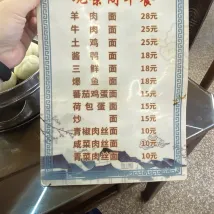 羊肉面 28元
牛肉面 25元
土鸡面 25元
酱鸭面 18元
三鲜面 18元
爆鱼面 18元
蕃茄鸡蛋面 15元
荷包蛋面 15元
炒面 15元
青椒肉丝面 10元
咸菜肉丝面 10元
青菜肉丝面 10元